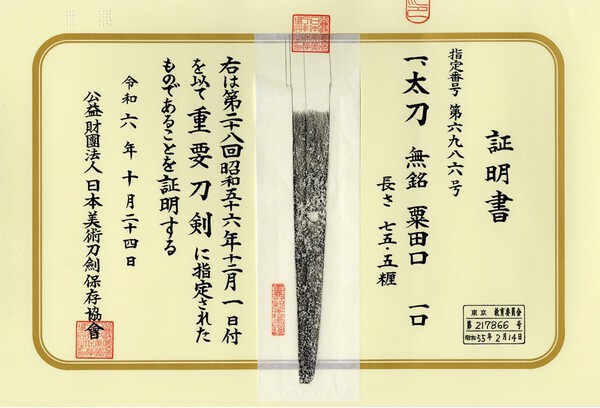 証明書
指定番号 第六九八六号
一、太刀 無銘 粟田口 一口
長さ 七五・五糎
東京 教育委員会
第 217866 号
昭和 55年 2月 14日
右は第二十八回昭和五十六年十二月一日付
を以て重要刀剣に指定された
ものであることを証明する
令和六年十月二十四日
公益財團法人日本美術刀劍保存協會